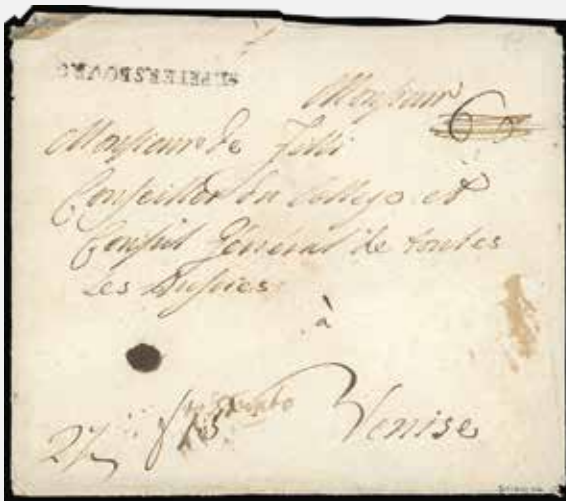 ST.PETERSBOURG
Monsieur
6
Monsieur de
Conseiller du College et
Consul Général de toutes
Les Russies
à
Venise
27